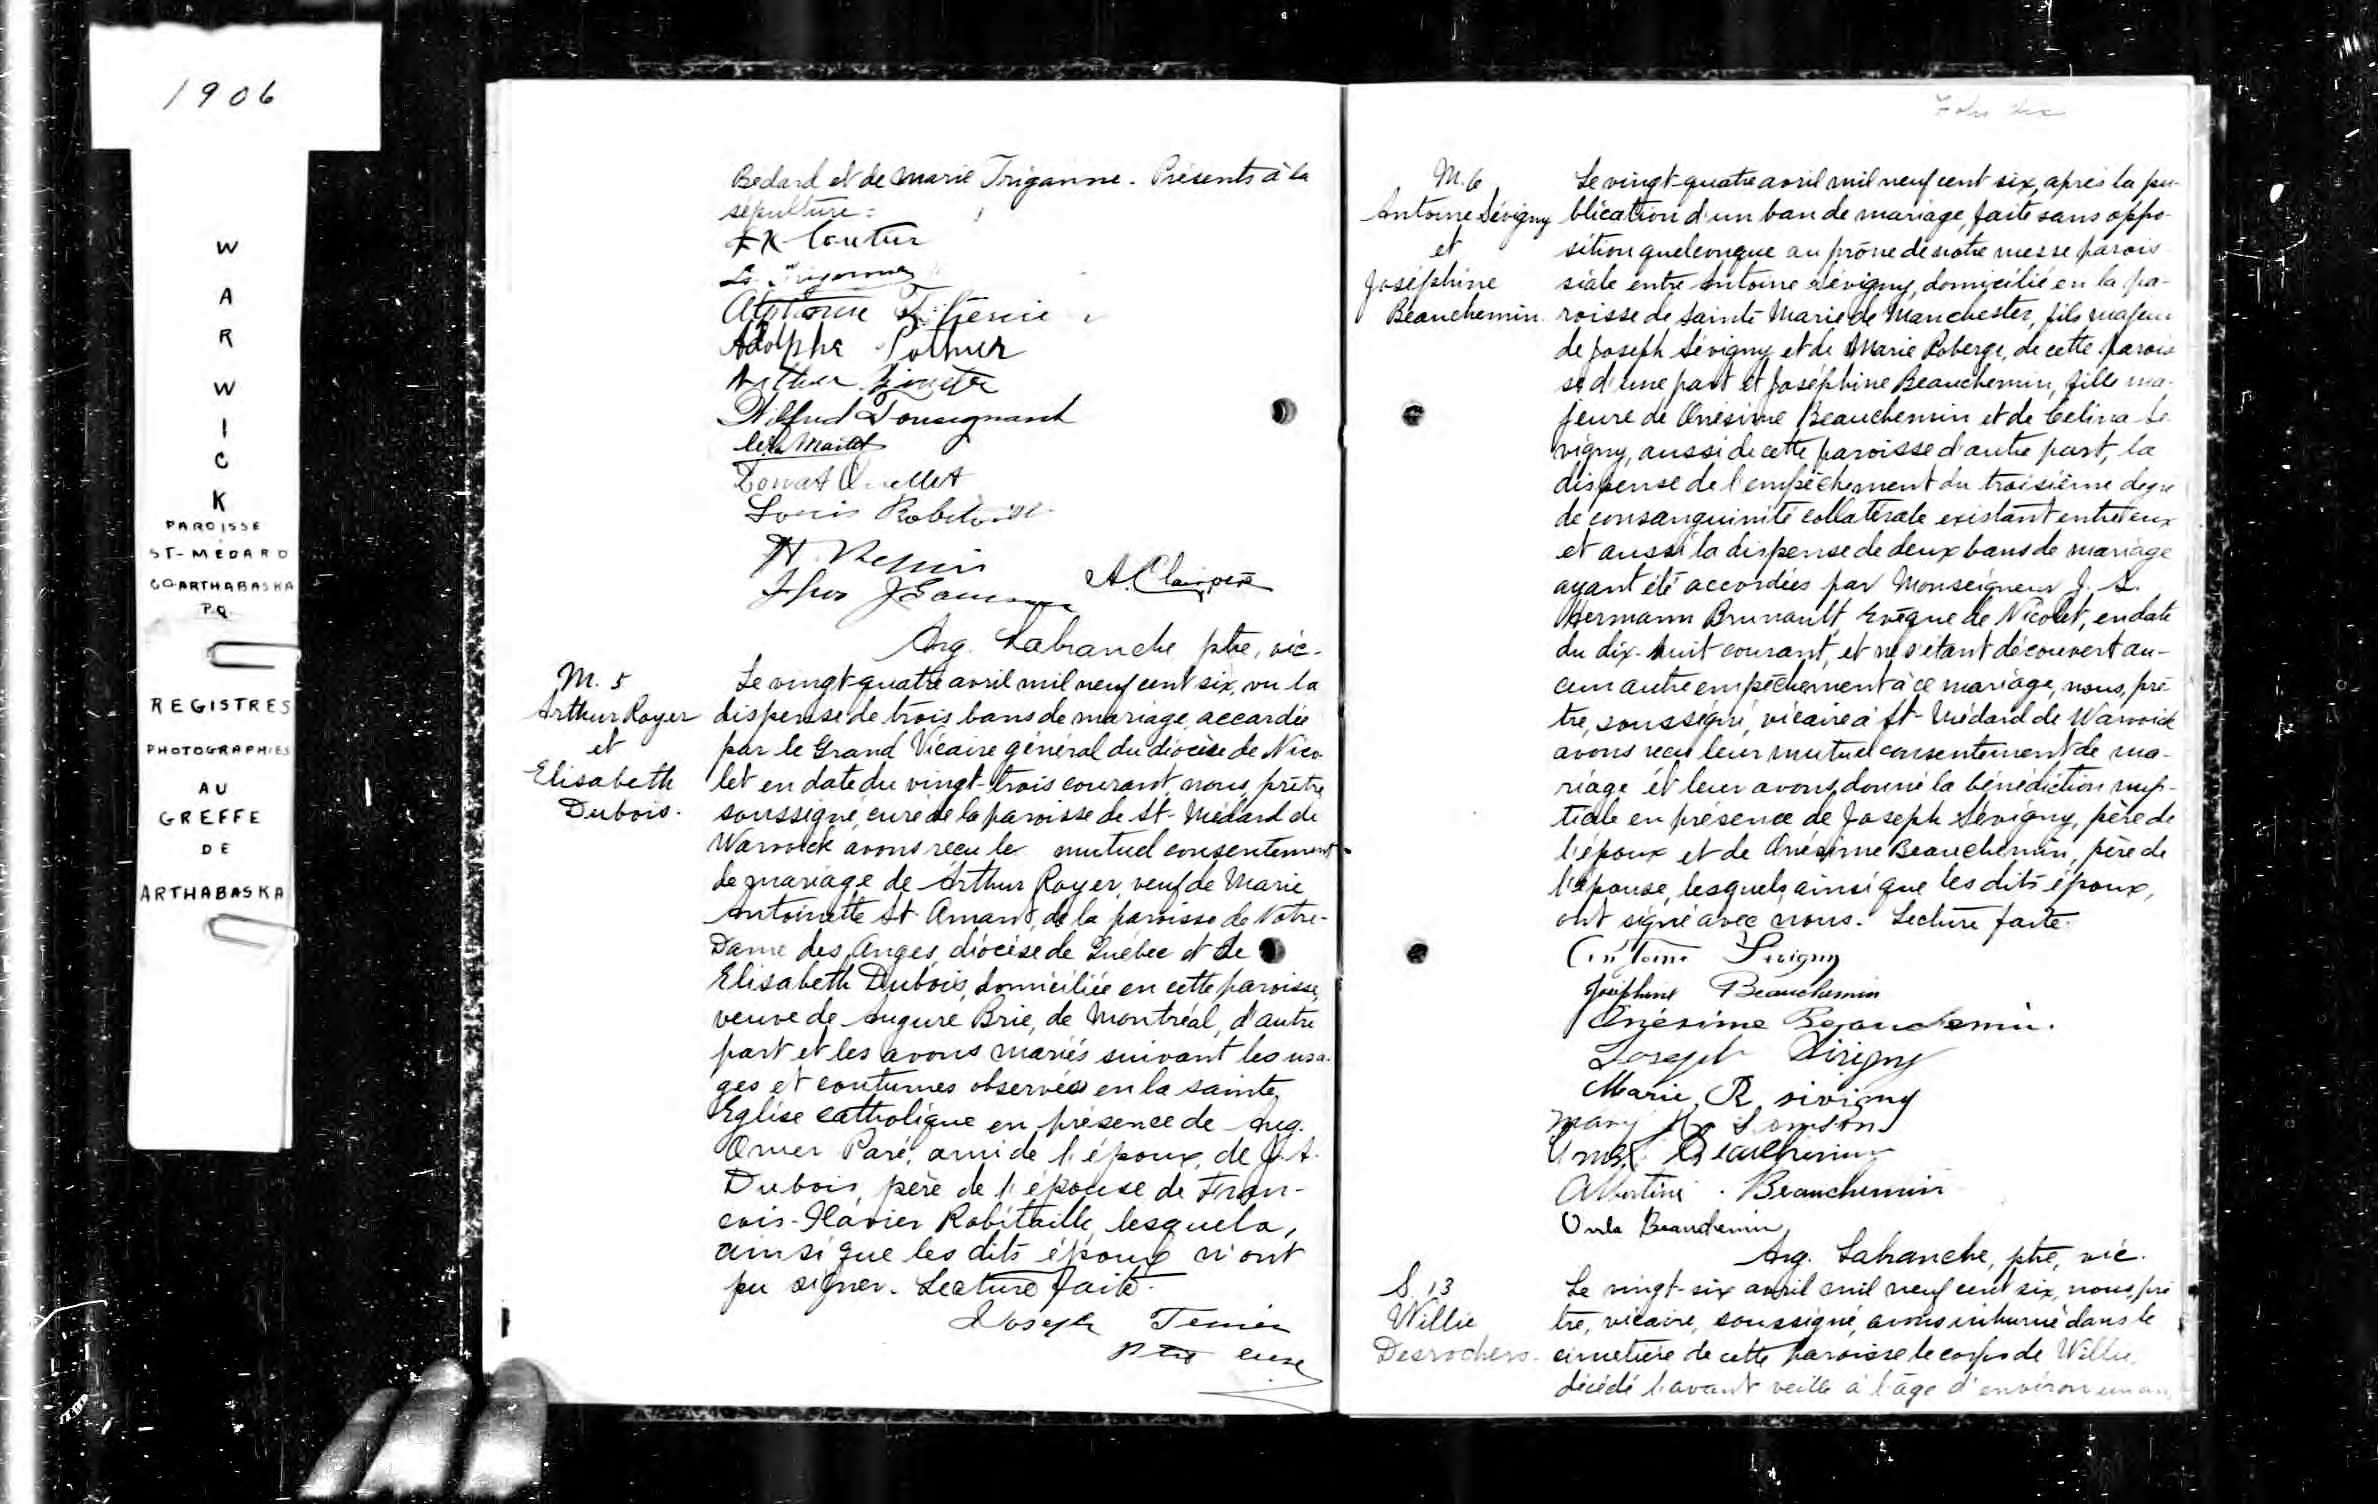 1906
WARWICK
PAROISSE
ST-MÉDARD
CO-ARTHABASKA
P.Q.
REGISTRES
PHOTOGRAPHIES
AU
GREFFE
DE
ARTHABASKA
Bédard et de Marie Triganne. Présents à la
sépulture:
FX
Adolphe
Arthur
Wilfrid Tousignant
Donat Ouellet
Louis Robitaille
H.
J
Arg. Labranche ptre, vic.
M. 5
Arthur Royer
et
Elisabeth
Dubois.
Le vingt-quatre avril mil neuf cent six, vu la
dispense de trois bans de mariage accordée
par le Grand Vicaire général du diocèse de Nico
let en date du vingt-trois courant, nous, prêtre
soussigné, curé de la paroisse de St-Médard de
Warwick avons reçu le mutuel consentement
de mariage de Arthur Royer, veuf de Marie
Antoinette St-Amant, de la paroisse de Notre-
Dame des Anges, diocèse de Québec et de
Elisabeth Dubois, domiciliée en cette paroisse,
veuve de Brie, de Montréal, d'autre
part et les avons mariés suivant les usa-
ges et coutumes observées en la sainte
Eglise catholique en présence de Aug.
Omer Paré, ami de l'époux, de J.A.
Dubois, père de l'épouse de Fran-
cois-Xavier Robitaille, lesquels,
ainsi que les dits époux n'ont
pu signer. Lecture faite.
Joseph Tessier
ptre curé
M. 6
Antoine Sévigny
et
Joséphine
Beauchemin.
Le vingt-quatre avril mil neuf cent six, après la pu-
blication d'un ban de mariage, faite sans oppo-
sition quelconque au prône de notre messe parois-
siale entre Antoine Sévigny, domicilié en la pa-
roisse de Sainte Marie de Manchester, fils majeur
de Joseph Sévigny et de Marie Roberge, de cette parois
se d'une part et Joséphine Beauchemin, fille ma-
jeure de Onésime Beauchemin et de Celina Sé
vigny, aussi de cette paroisse d'autre part, la
dispense de l'empêchement du troisième degré
de consanguinité collatérale existant entre eux
et aussi la dispense de deux bans de mariage
ayant été accordées par Monseigneur J. S.
Hermann Brunault, Evêque de Nicolet, en date
du dix-huit courant, et ne s'étant découvert au-
cun autre empêchement à ce mariage, nous, prê
tre, soussigné, vicaire à St-Médard de Warwick
avons reçu leur mutuel consentement de ma-
riage et leur avons donné la bénédiction nup-
tiale en présence de Joseph Sévigny, père de
l'époux et de Onésime Beauchemin, père de
l'épouse, lesquels, ainsi que les dits époux,
ont signé avec nous. Lecture faite.
Antoine Sevigny
Joséphine Beauchemin
Onésime Beauchemin.
Joseph Sévigny
Marie R sivigny
Mary
Beauchemin
Albertine Beauchemin
Beauchemin
Arg. Labranche, ptre, vic.
S. 13
Willie
Desrochers.
Le vingt-six avril mil neuf cent six, nous, prê
tre, vicaire, soussigné, avons inhumé dans le
cimetière de cette paroisse le corps de Willie,
décédé l'avant veille à l'âge d'environ un an,